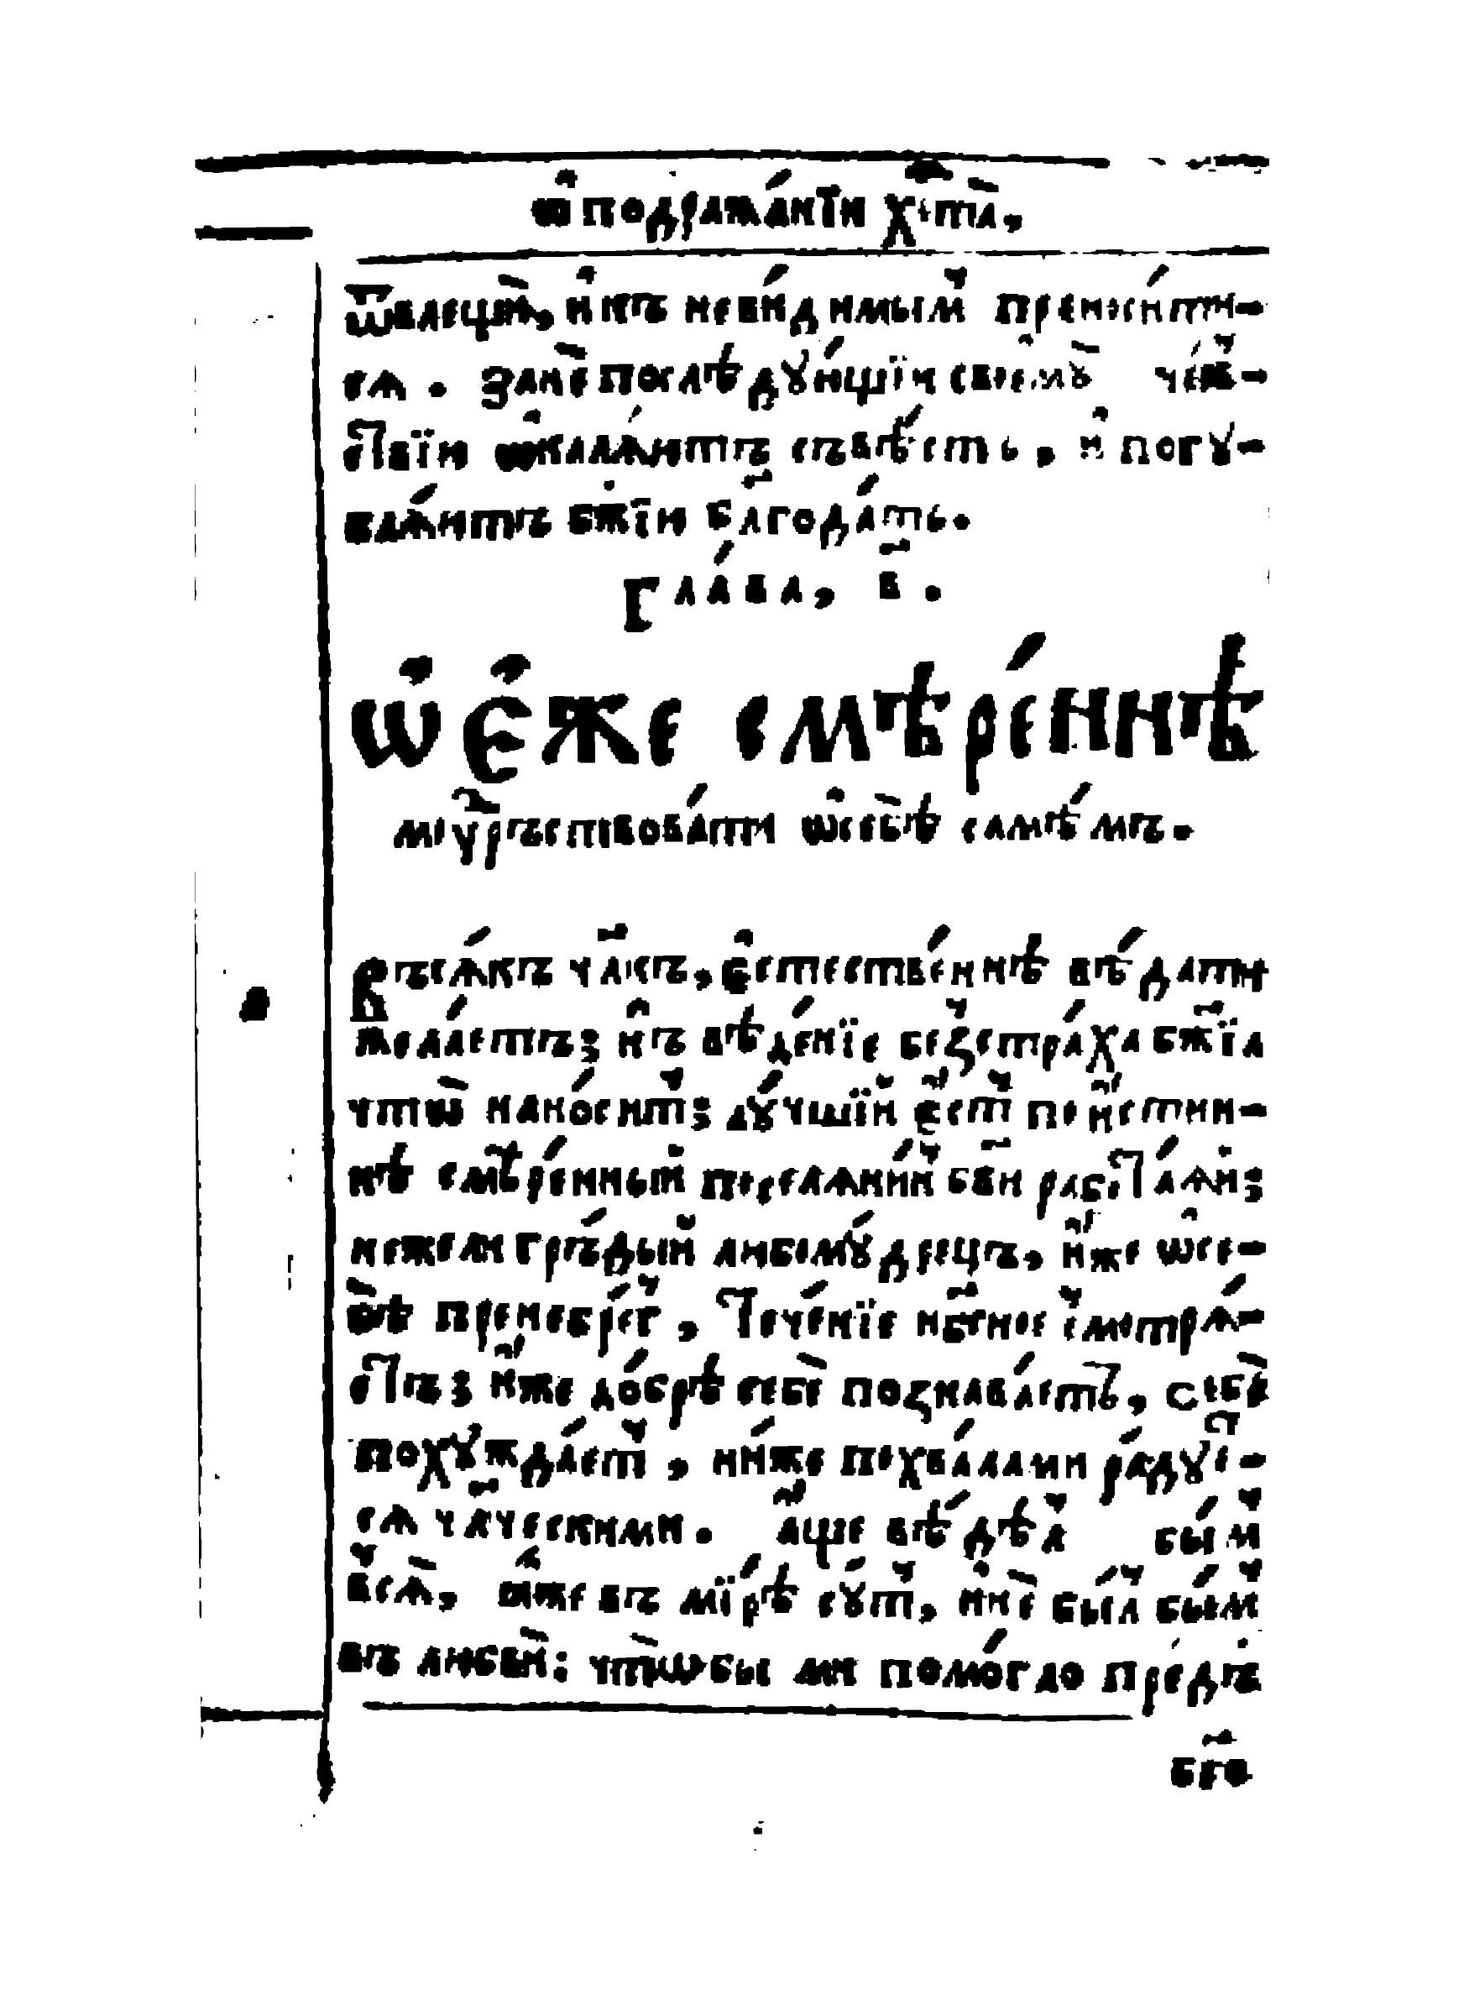 ѡ҆подража́нїи хⷭ҇та̀,
ѿвлещѝ, и҆къ неви́димым̾ преноси́ти-
сѧ . Занѐпослѣ́дꙋющїи своемꙋ̀ чю́в̾-
ствїю ѡ҆калѧ́ютъ съвѣ́сть, и҆ погꙋ-
блѧ́ютъ бж҃їю бл҃года́ть.
Гла́ва, в҃.
Ѡ҆ Є҆же смѣре́ннѣ
мꙋ́дръствова́ти ѡ҆себѣ̀ самѣ́мъ.
Всѧ́къ чл҃къ, є҆стестве́ннѣ вѣ́дати
жела́етъ; нъ вѣ́де́нїе без̾стра́ха бж҃їа
чтѡ̀ нано́сит̾; лꙋ́чшїй є҆́ст̾ пои҆́стин-
нѣ смѣре́нный поселѧ́ни́н̾ бг҃ꙋ рабо́таѧй;
нежели гръ́дый любомꙋ́дрецъ, и҆́же ѡ҆се-
бѣ̀ пренебре́г̾, тече́нїе нбⷭ҇ное с̾мотрѧ́-
етъ; и҆́же до́брѣ себѐ познава́етъ, себѐ
похꙋжда́ет̾, нѝже похва́лами ра́дꙋет-
сѧ чл҃ческими. а҆́ще вѣ́дѣл̾ бы́м̾
всѧ̀, ꙗ҆́же въ мі́рѣ сꙋ́т̾, и҆ не бы́л̾ бы́м̾
въ любвѝ: чтѡ̀бы ми помо́гло пре́дъ
бг҃ѡ